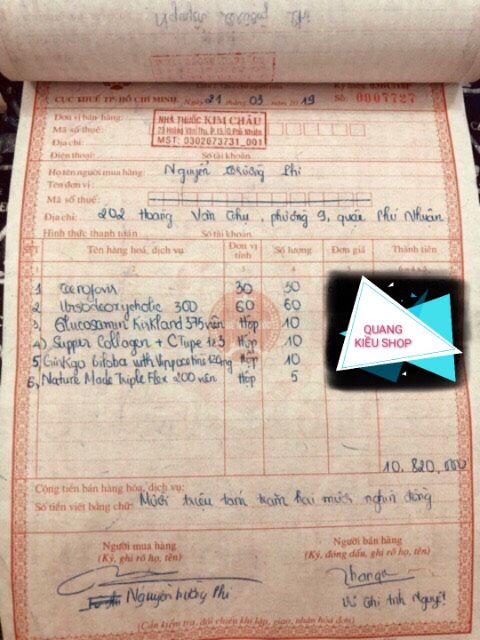 CỤC THUẾ TP. HỒ CHÍ MINH Ngày 21 tháng 03 năm 2019 Số: 0007727
Đơn vị bán hàng:
NHÀ THUỐC KIM CHÂU
Mã số thuế:
MST: 0302673731_001
Địa chỉ:
Điện thoại: Số tài khoản
Họ tên người mua hàng: Nguyễn Trường Phi
Tên đơn vị:
Mã số thuế:
Địa chỉ: 202 Hoàng Văn Thụ, phường 9, quận Phú Nhuận
Hình thức thanh toán Số tài khoản
STT Tên hàng hoá, dịch vụ Đơn vị tính Số lượng Đơn giá Thành tiền
1 30 30
2 Ursodeoxycholic 300 60 60
3 Glucosamin Kirkland 375 viên Hộp 10
4) Supper Collagen + C Type 1&3 Hộp 10
5 Ginkgo biloba with Vinpocetine 120mg Hộp 10
6, Nature Made Triple Flex 200 viên Hộp 5
QUANG
KIỀU SHOP
10.820.000
Cộng tiền bán hàng hóa, dịch vụ:
Số tiền viết bằng chữ: Mười triệu tám trăm hai mươi nghìn đồng
Người mua hàng Người bán hàng
(Ký, ghi rõ họ, tên) (Ký, đóng dấu, ghi rõ họ, tên)
Nguyễn Trường Phi
(Cần kiểm tra, đối chiếu khi lập, giao, nhận hóa đơn)